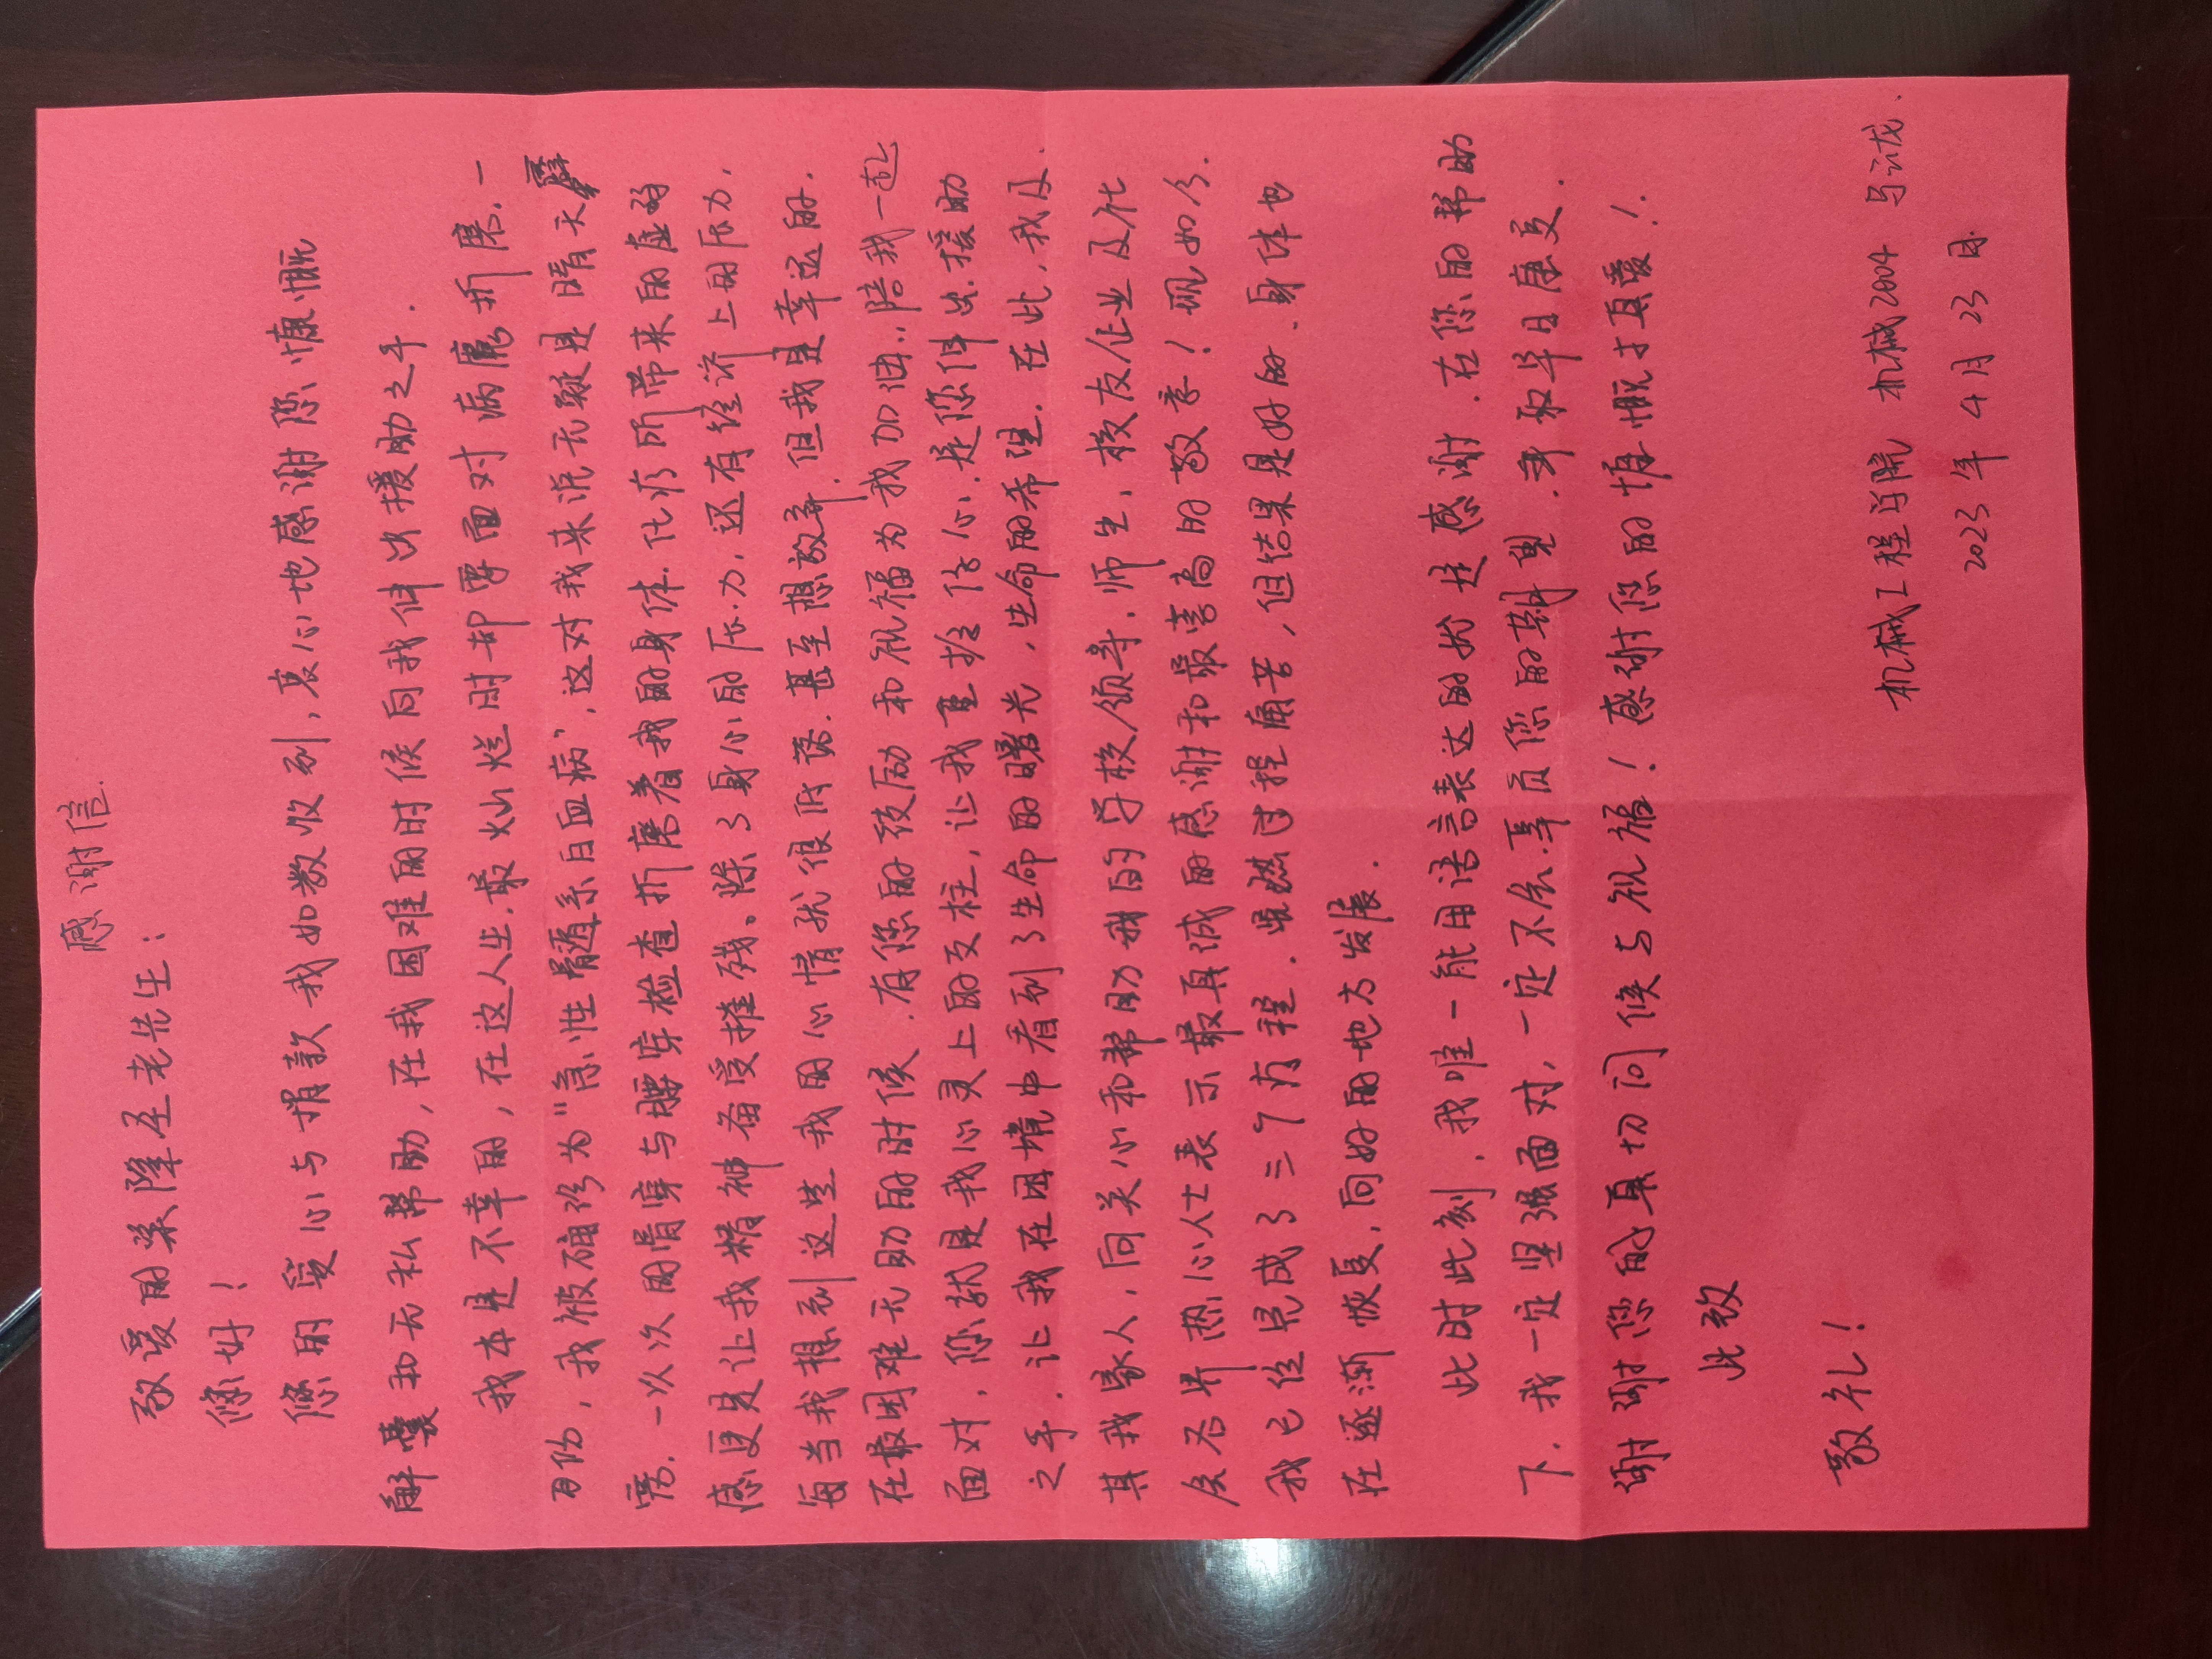 感谢信.
敬爱的梁降玉老先生:
您好!
您的爱心与捐款我如数收到,衷心地感谢您慷慨
解囊和无私帮助,在我困难的时候向我伸出援助之手.
我本是不幸的,在这人生最灿烂时却要面对病魔折磨.一
月份,我被确诊为"急性髓系白血病",这对我来说无疑是晴天霹
雳.一次次的骨穿与腰穿检查折磨着我的身体.化疗所带来的虚弱
感更是让我精神备受摧残。除了身心的压力,还有经济上的压力,
每当我想到这些我的心情就很低落.甚至想放弃.但我是幸运的.
在最困难无助的时候.有您的鼓励和祝福为我加油.陪我一起
面对,您就是我心灵上的支柱,让我重拾信心.是您伸出援助
之手.让我在困境中看到了生命的曙光,生命的希望.在此,我及
其我家人,向关心和帮助我的学校领导.师生,校友企业及社
会各界热心人士表示最真诚的感谢和最崇高的敬意!现如今.
我已经完成了三个疗程.虽然过程痛苦,但结果是好的.身体也
在逐渐恢复,向好的地方发展.
此时此刻.我唯一能用语言表达的就是感谢.在您的帮助
下.我一定坚强面对,一定不会辜负您的期望.争取早日康复.
谢谢您的真切问候与祝福!感谢您的慷慨于真爱!
此致
敬礼!
机械工程学院 机械2004 马云龙.
2023年4月23日